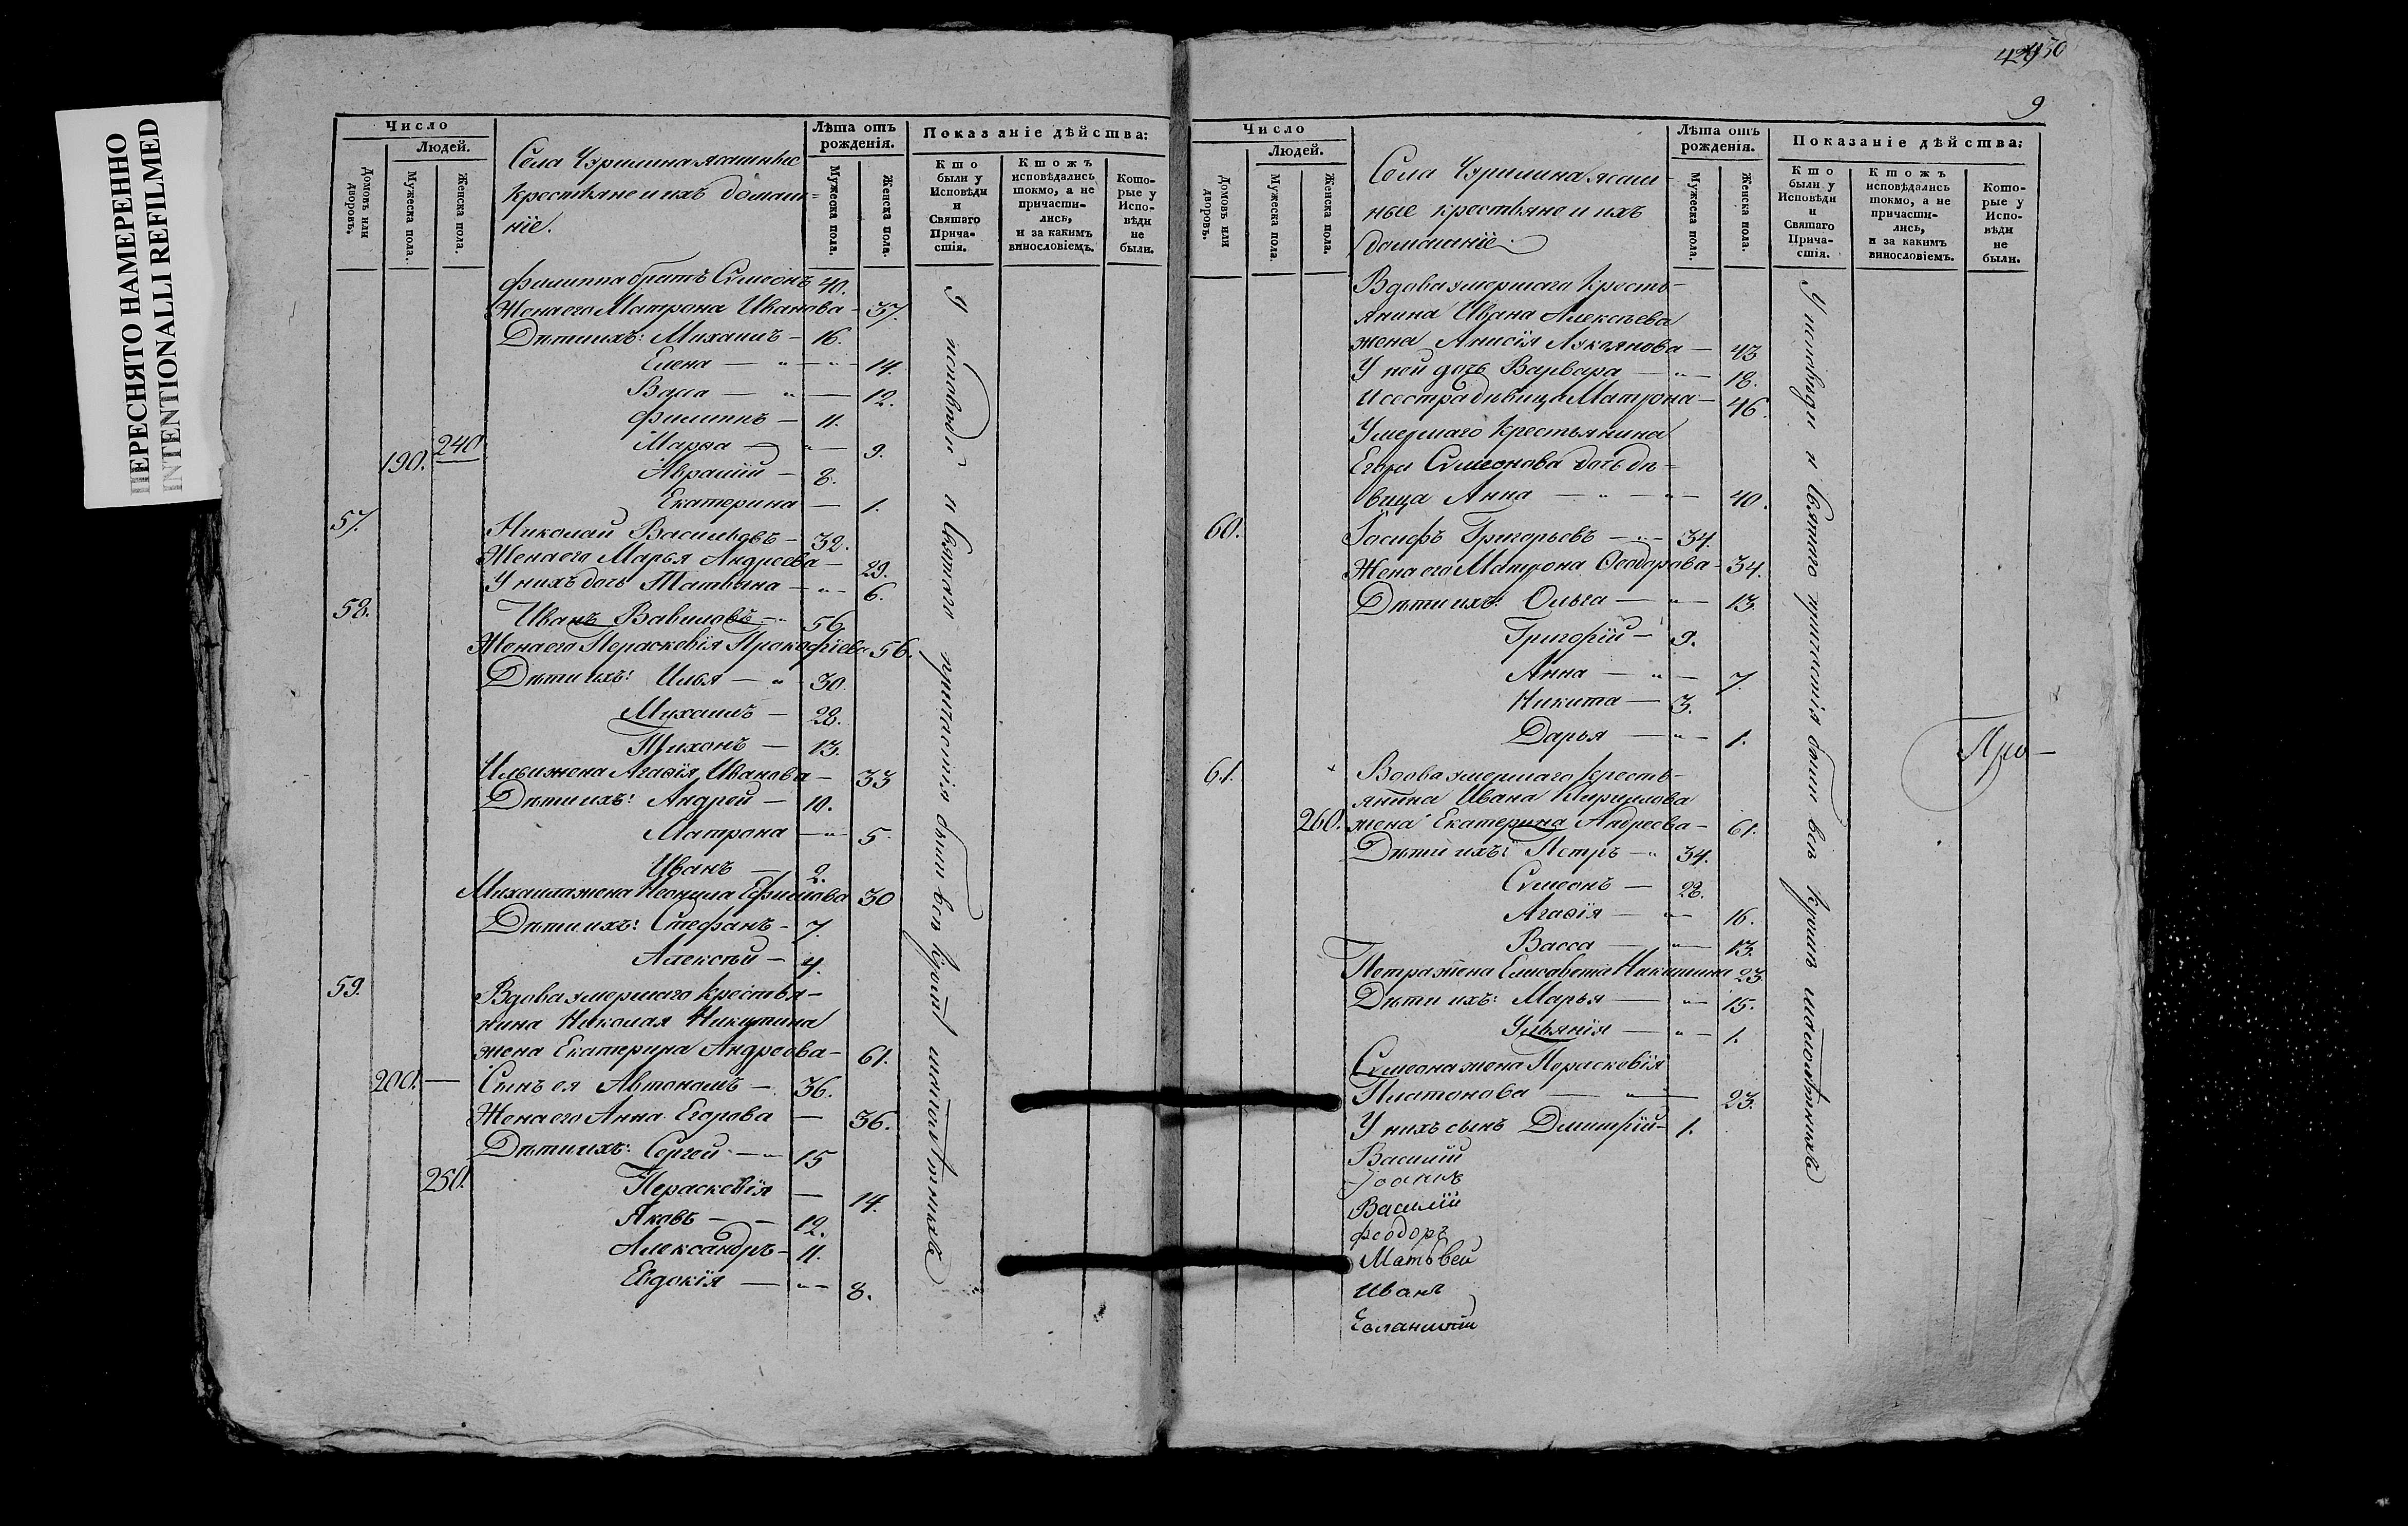 ПЕРЕСНЯТО НАМЕРЕННО
INTENTIONALLI REFILMED
Число
Людей.
Домовъ или дворовъ.
Мужеска пола.
Женска пола.
Села Чурилина ясашные
крестьяне и ихъ домаш=
ніе.
Лѣта отъ
рожденія.
Мужеска пола.
Женска пола.
Показаніе дѣйства:
Кто
были у
Исповѣди
и
Святаго
Прича-
стія.
Ктожъ
исповѣдались
токмо, а не
причасти-
лись,
и за какимъ
винословіемъ.
Кото-
рые у
Испо-
вѣди
не
были.
Филиппа братъ Сѵмеонъ 40.
Жена его Матрона Иванова - 37.
Дѣти ихъ: Михаилъ - 16.
Елена — " — " — 14.
Васса — " — 12.
Филиппъ — 11.
190. 240. Марѳа — " — 9.
Авраамій — 8.
Екатерина — 1.
57. Николай Васильевъ — 32.
Жена его Марья Андреева — 29.
У нихъ дочь Татьяна — " — 6.
58. Иванъ Вавиловъ — " 56.
Жена его Параскевія Прокофіева 56.
Дѣти ихъ: Илья — " 30.
Михаилъ — 28.
Тихонъ — 13.
Ильи жена Агаѳія Иванова — 33
Дѣти ихъ: Андрей — 10.
Матрона — " — 5.
Иванъ — 2.
Михаила жена Неонила Ефимова 30
Дѣти ихъ: Стефанъ — 7.
Алексѣй — 4.
59. Вдова умершаго крестья-
нина Николая Никитина
жена Екатерина Андреева — 61.
200. — Сынъ ея Автономъ — 36.
Жена его Анна Егорова — 36.
Дѣти ихъ: Сергей — " — 15
250. Параскевія — 14.
Яковъ — — 12.
Александръ — 11.
Евдокія — " — 8.
У исповѣди и святаго причастія были всѣ кромѣ малолѣтныхъ
429 430
9
Число
Людей.
Домовъ или дворовъ.
Мужеска пола.
Женска пола.
Села Чурилина ясаш-
ные крестьяне и ихъ
домашніе.
Лѣта отъ
рожденія.
Мужеска пола.
Женска пола.
Показаніе дѣйства:
Кто
были у
Исповѣди
и
Святаго
Прича-
стія.
Ктожъ
исповѣдались
токмо, а не
причасти-
лись,
и за какимъ
винословіемъ.
Кото-
рые у
Испо-
вѣди
не
были.
Вдова умершаго кресть-
янина Ивана Алексѣева
жена Анисія Лукіянова — 43
У ней дочь Варвара — " — 18.
И сестра дѣвица Матрона — 46.
Умершаго крестьянина
Егора Сѵмеонова дочь дѣ=
вица Анна — " — " — 40.
60. Іосифъ Григорьевъ — " — 34.
Жена его Матрона Ѳеодорова — 34.
Дѣти ихъ: Ольга — " — 13.
Григорій — 9.
Анна — " — 7.
Никита — 3.
Дарья — " — 1.
61. Вдова умершаго кресть-
янина Ивана Кириллова
260. жена Екатерина Андреева — 61.
Дѣти ихъ: Петръ — " 34.
Сѵмеонъ — 28.
Агаѳія — " — 16.
Васса — " — 13.
Петра жена Елисавета Никитина 23.
Дѣти ихъ: Марья — " — 15.
Ульянія — " — 1.
Сѵмеона жена Параскевія
Платонова — " — 23.
У нихъ сынъ Димитрій — 1.
Василій
Іоаннъ
Василій
Ѳеодоръ
Матвей
Иванъ
Евлампій
У исповѣди и святаго причастія были всѣ кромѣ малолѣтныхъ
При —